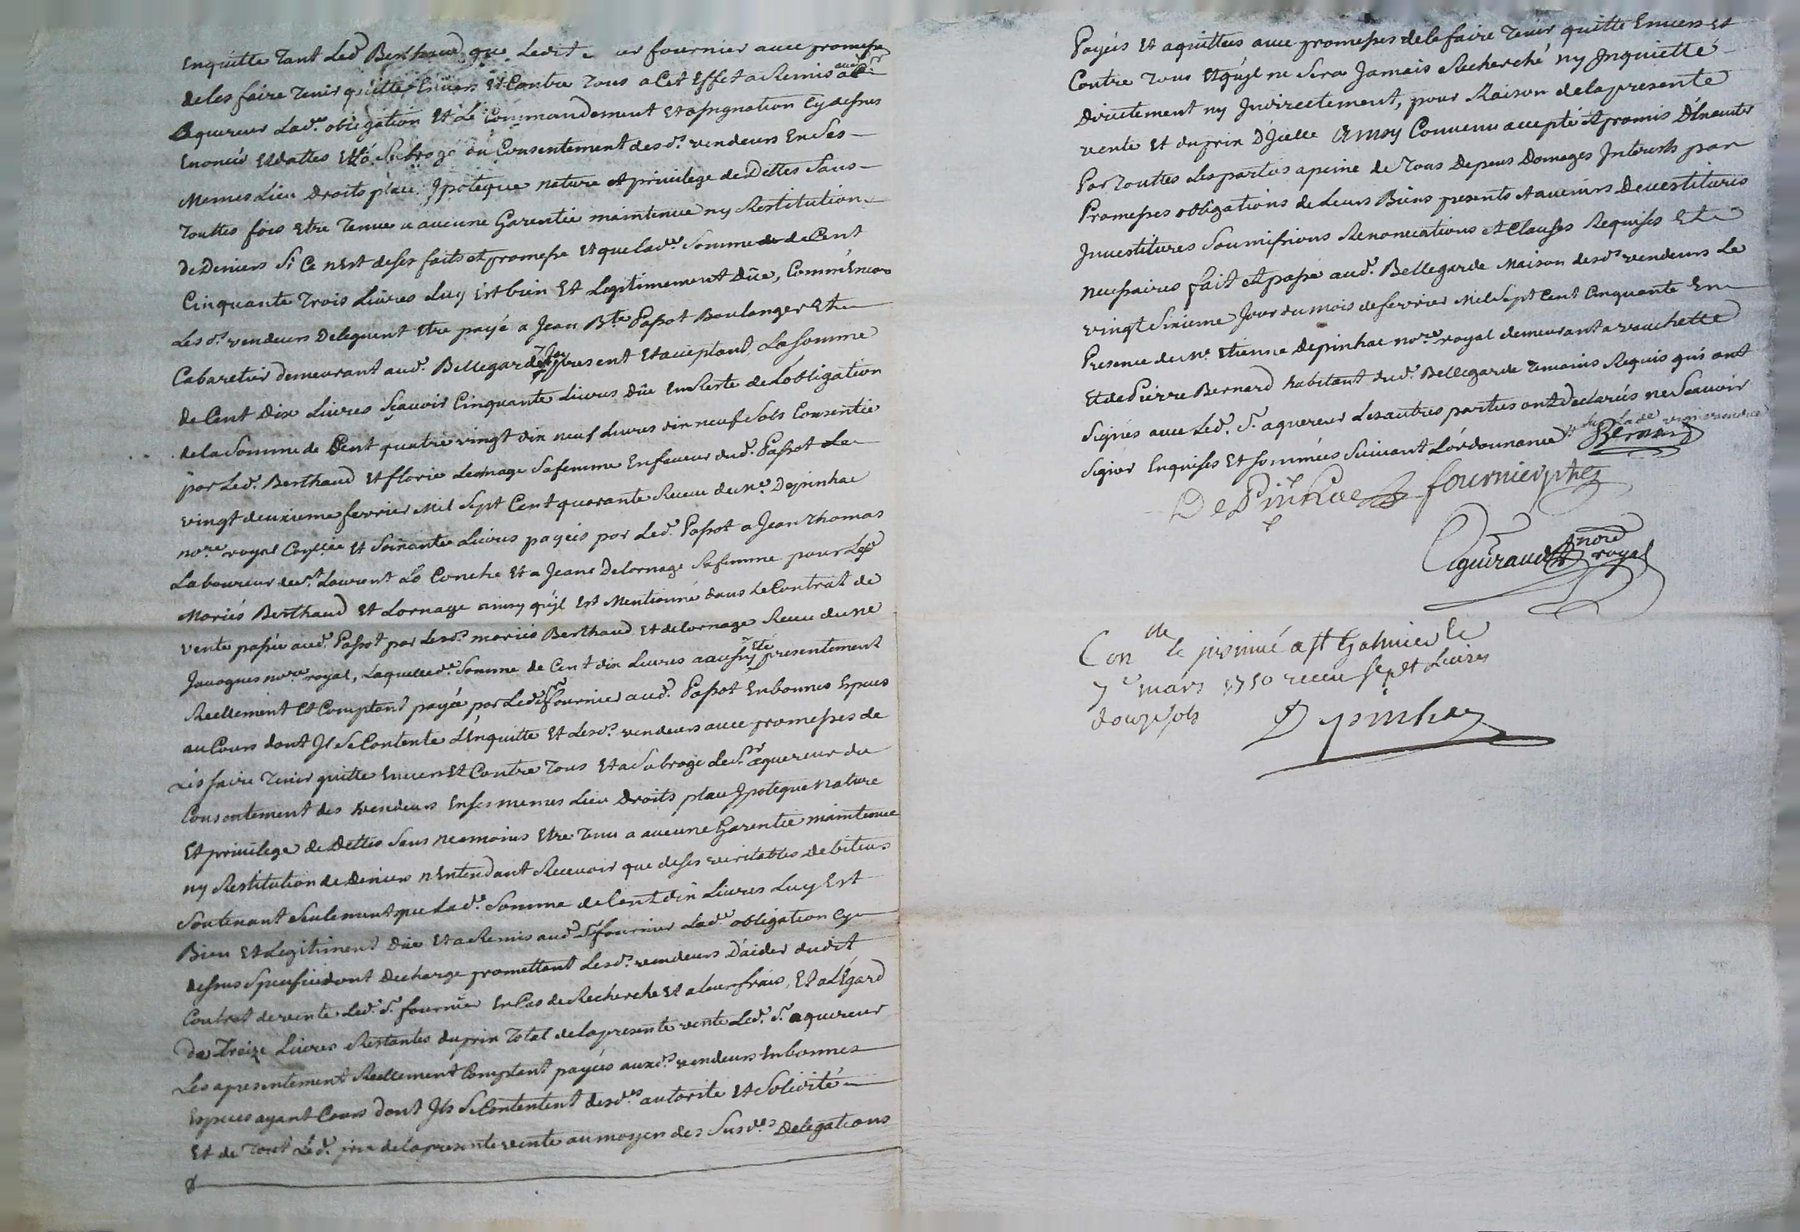 Enquitte Tant Led. Berthaud que Ledit fournier avec promesse
de les faire Tenir quitte Envers Et Contre Tous a Cet Effet a Remis
aquereur Lad.e obligation Et Le Commandement Et assignation Cy dessus
Enoncés Et dattes Et a Subrogé du Consentement desd.s vendeurs En Ses
Memes Lieu Droits place Ipoteque nature et privilege de Dettes Sans
Touttes fois Etre Tenue a aucune Garentie maintenue ny Restitution
de Deniers Si Ce nEst de ses faits et promesse Et que Lad.e Somme de Cent
Cinquante Trois Livres Luy Est bien Et Legitimement Düe, Comm'Encor
Les d.s vendeurs Deleguent Etre payé a Jean B.te Passot Boulanger Et
Cabaretier demeurant aud. Bellegarde present Et acceptant La Somme
de Cent Dix Livres Sçavoir Cinquante Livres Düe En Reste de Lobligation
de la Somme de Cent quatre vingt dix neuf Livres dix neuf Sols Consentie
par Led. Berthaud Et florie Lornage Sa femme En faveur dud. Passot Le
vingt deuxieme fevrier Mil Sept Cent quarante Receu de Me. Depinhac
no.re royal Et Soixante Livres payées par Led. Passot a Jean Thomas
Laboureur de St. Laurent La Conche Et a Jeane Delornage Sa femme pour Lesd.
Mariés Berthaud Et Lornage ainsy qu'jl Est Mentionné dans Le Contrat de
vente passée aud. Passot par Lesd. mariés Berthaud Et delornage Receu de Me
Javogues no.re royal, Laquelle d.e Somme de Cent dix Livres a aussy presentement
Reellement Et Comptant payée par Led. Sr. fournier aud. Passot En bonnes Especes
au Cours dont Jl Se Contente L'Enquitte Et Lesd. vendeurs avec promesses de
Les faire Tenir quitte Envers Et Contre Tous Et a Subrogé Led. Sr. aquereur du
Consentement des vendeurs En Ses memes Lieu Droits place Ipoteque Nature
Et privilege de Dettes Sans neamoins Etre Tenu a aucune Garentie maintenue
ny Restitution de Deniers n'Entendant Recevoir que de Ses veritables debiteurs
Soutenant Seulement que Lad.e Somme de Cent dix Livres Luy Est
Bien Et Legitiment Düe Et a Remis aud. Sr. fournier Lad.e obligation Cy
dessus Specifiée dont decharge promettant Lesd.s vendeurs D'aider dudit
Contrat de vente Led. Sr. fournier En Cas de Recherche Et a leur frais, Et a L'Egard
de Treize Livres Restantes du prix Total de la presente vente Led. Sr. aquereur
Les a presentement Reellement Comptant payées aux d.s vendeurs En bonnes
Especes ayant Cours dont Jls Se Contentent desd.es autorité Et Solidité
Et de Tout Led. prix de la presente vente au moyen des Susd.es Delegations
Payées Et aquittées avec promesses de le faire Tenir quitte Envers Et
Contre Tous Et qu'jl ne Sera Jamais Recherché ny Inquietté
Directement ny Indirectement, pour Raison de la presente
vente Et du prix D'jcelle ainsy Convenu accepté Et promis D'Executer
Par Touttes Les parties a peine de Tous Depens Domages Interests par
Promesses obligations de Leurs Biens presents Et avenirs Devestitures
Investitures Soumissions Renonciations et Clauses Requises Et
Necessaires fait Et passé aud. Bellegarde Maison desd.s vendeurs Le
vingt Sixieme Jour du mois de fevrier Mil Sept Cent Cinquante En
Presence de Me. Etienne Depinhac no.re royal demeurant a vauchette
Et de Pierre Bernard habitant dud. Bellegarde Temoins Requis qui ont
Signés avec Led. Sr. aquereur Les autres parties ont declarés ne Scavoir
Signer Enquises Et Sommées Suivant L'ordonnance
Bernard
DePinhac fournier ptre
Guiraud no.re royal
Con.lle le jnsinué a St Galmier le
7e mars 1750 receu sept Livres
douze sols Depinhac